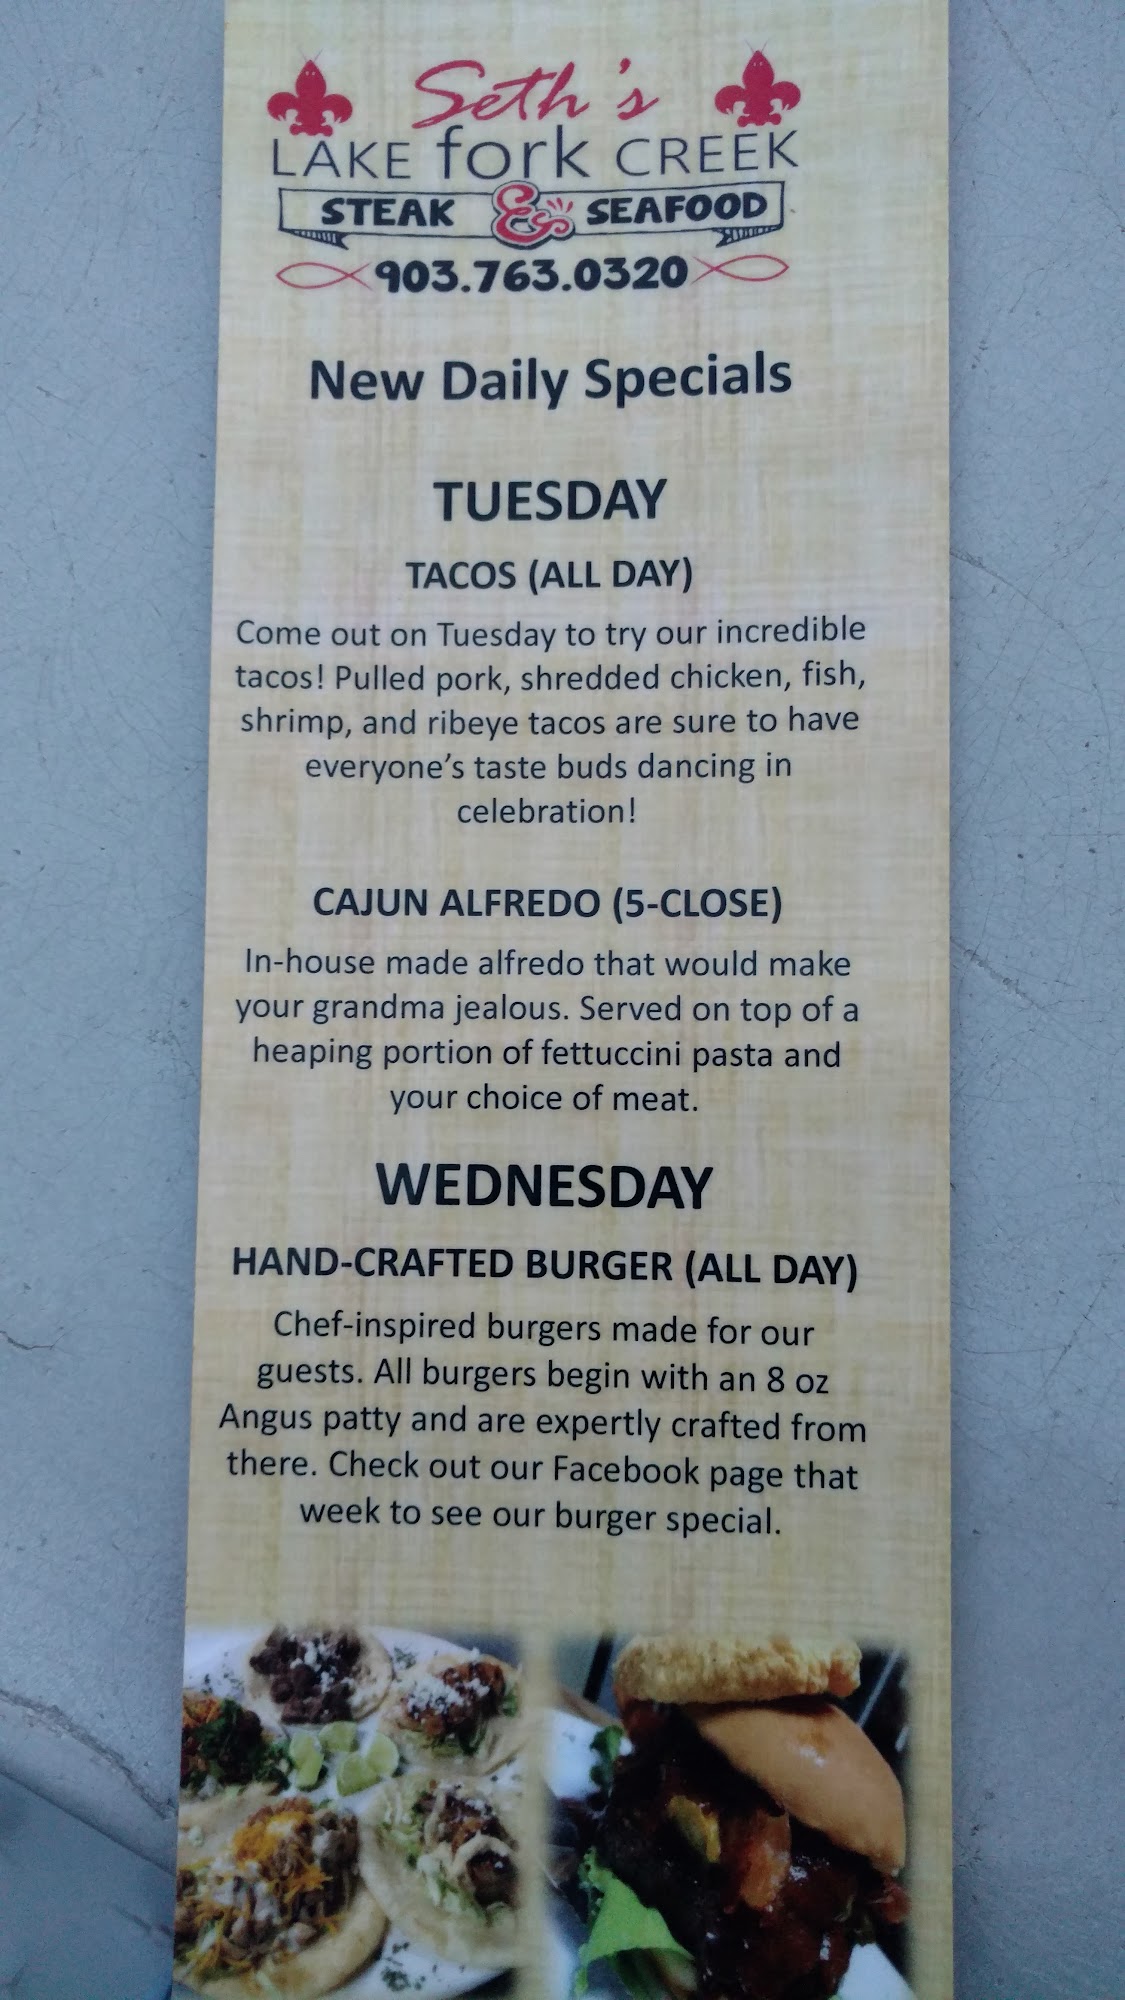 Seth's
LAKE fork CREEK
STEAK & SEAFOOD
903.763.0320
New Daily Specials
TUESDAY
TACOS (ALL DAY)
Come out on Tuesday to try our incredible
tacos! Pulled pork, shredded chicken, fish,
shrimp, and ribeye tacos are sure to have
everyone's taste buds dancing in
celebration!
CAJUN ALFREDO (5-CLOSE)
In-house made alfredo that would make
your grandma jealous. Served on top of a
heaping portion of fettuccini pasta and
your choice of meat.
WEDNESDAY
HAND-CRAFTED BURGER (ALL DAY)
Chef-inspired burgers made for our
guests. All burgers begin with an 8 oz
Angus patty and are expertly crafted from
there. Check out our Facebook page that
week to see our burger special.